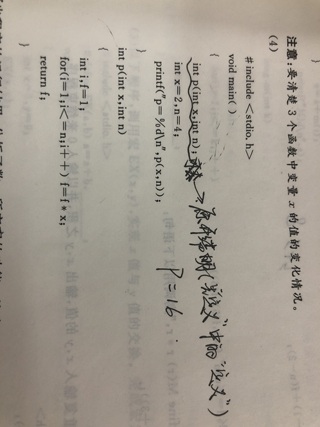 注意:要清楚 3 个函数中变量 x 的值的变化情况。
(4)
# include <stdio. h>
void main( )
{
int p(int x,int n);
→原形声明(“先定义”中的“定义”)
int x=2,n=4;
printf("p=%d\n",p(x,n));
P=16
}
int p(int x,int n)
{
int i,f=1;
for(i=1;i<=n;i++) f=f * x;
return f;
}